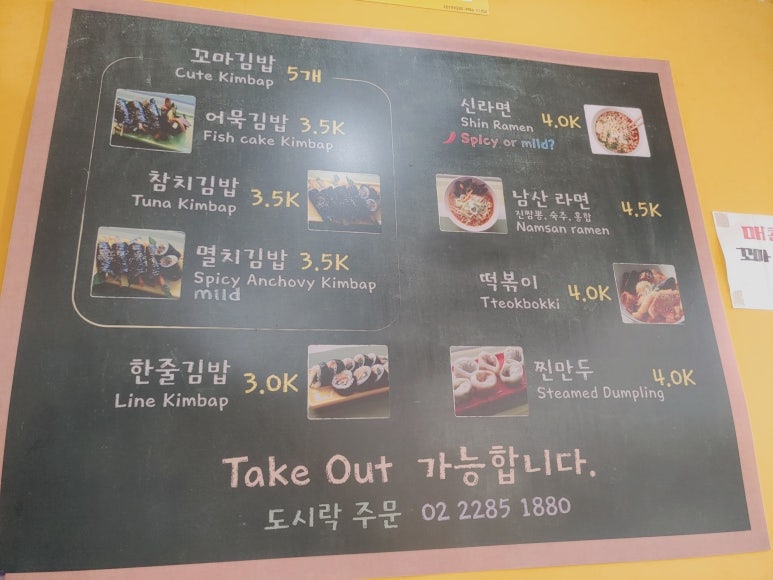 꼬마김밥
Cute Kimbap 5개
어묵김밥 3.5K
Fish cake Kimbap
참치김밥
Tuna Kimbap 3.5K
멸치김밥 3.5K
Spicy Anchovy Kimbap
mild
한줄김밥
Line Kimbap 3.0K
신라면
Shin Ramen 4.0K
Spicy or mild?
남산 라면 4.5K
진짬뽕, 숙주, 홍합
Namsan ramen
떡볶이
Tteokbokki 4.0K
찐만두
Steamed Dumpling 4.0K
Take Out 가능합니다.
도시락 주문 02 2285 1880
꼬마